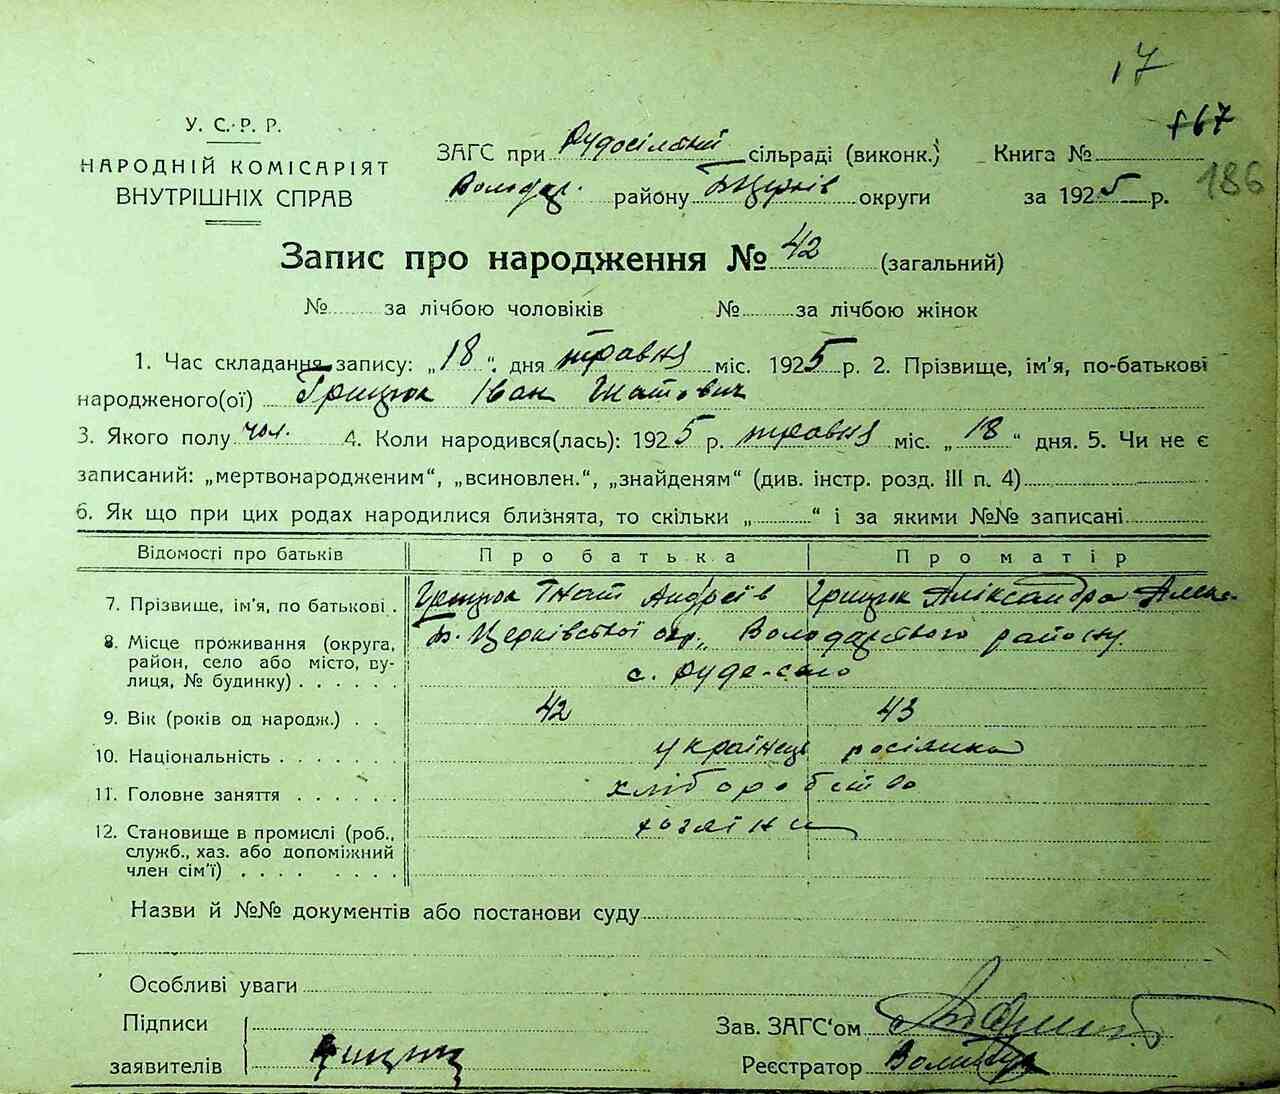 17
167
186
У. С. Р. Р.
НАРОДНІЙ КОМІСАРІЯТ
ВНУТРІШНІХ СПРАВ
ЗАГС при Рудосільській сільраді (виконк.) Книга №
Володар. району Б Церків округи за 1925 р.
Запис про народження № 42 (загальний)
№ за лічбою чоловіків № за лічбою жінок
1. Час складання запису: „18“ дня травня міс. 1925 р. 2. Прізвище, ім'я, по-батькові
народженого(ої) Грицюк Іван Гнатович
3. Якого полу чол. 4. Коли народився(лась): 1925 р. травня міс. „18“ дня. 5. Чи не є
записаний: „мертвонародженим“, „всиновлен.“, „знайденям“ (див. інстр. розд. III п. 4)
6. Як що при цих родах народилися близнята, то скільки „ “ і за якими №№ записані
Відомості про батьків Про батька Про матір
7. Прізвище, ім'я, по батькові . Грицюк Гнат Андреїв Грицюк Аліксандра
8. Місце проживання (округа, Б. Церківської окр., Володарського району
район, село або місто, ву-
лиця, № будинку) . . . . . . с. Руде-село
9. Вік (років од народж.) . . 42 43
10. Національність . . . . . . . українець
11. Головне заняття . . . . . . хліборобство
12. Становище в промислі (роб.,
служб., хаз. або допоміжний
член сім'ї) . . . . . . . .
Назви й №№ документів або постанови суду
Особливі уваги
Підписи
заявителів Грицюк
Зав. ЗАГС‘ом
Реєстратор